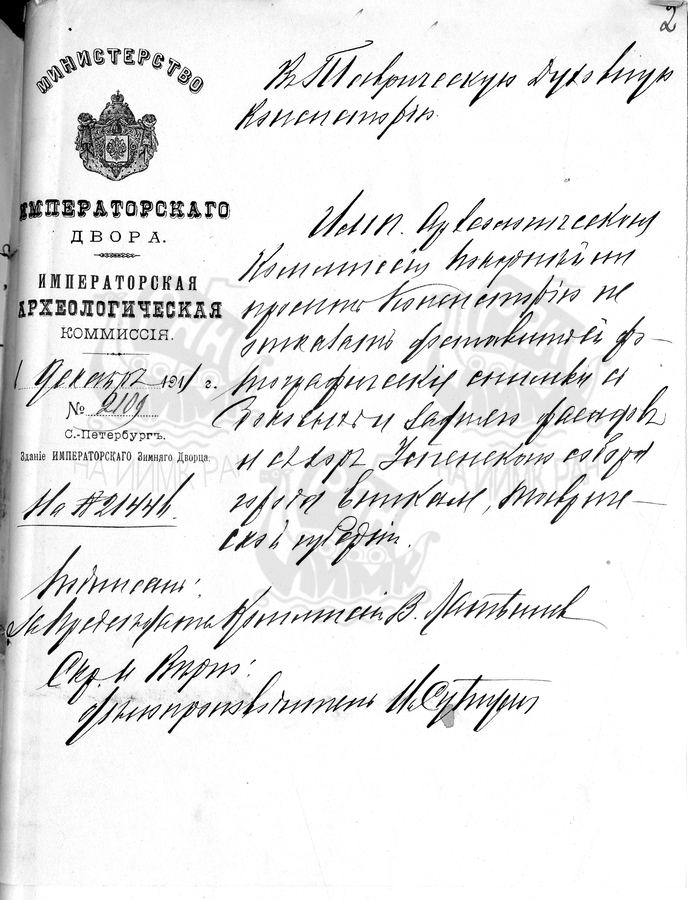 2
МИНИСТЕРСТВО
ИМПЕРАТОРСКАГО
ДВОРА.
ИМПЕРАТОРСКАЯ
АРХЕОЛОГИЧЕСКАЯ
КОММИССІЯ.
1 Декабря 1911 г.
№ 2109
С.-Петербургъ.
Зданіе ИМПЕРАТОРСКАГО Зимняго Дворца.
На № 21446.
Въ Таврическую Духовную
Консисторію.
Имп. Археологическая
Коммиссія покорнѣйше
проситъ Консисторію не
отказать доставить фо-
тографическіе снимки
западнаго фасадовъ
и Успенскаго собора
города Тавриче-
ской губерніи.
Подписалъ:
За Предсѣдателя Коммиссіи В. Латышевъ
Скр. и Вѣрно:
Дѣлопроизводитель И. Суслов
НА ИИМК РАН
НА ИИМК РАН
ИИМК